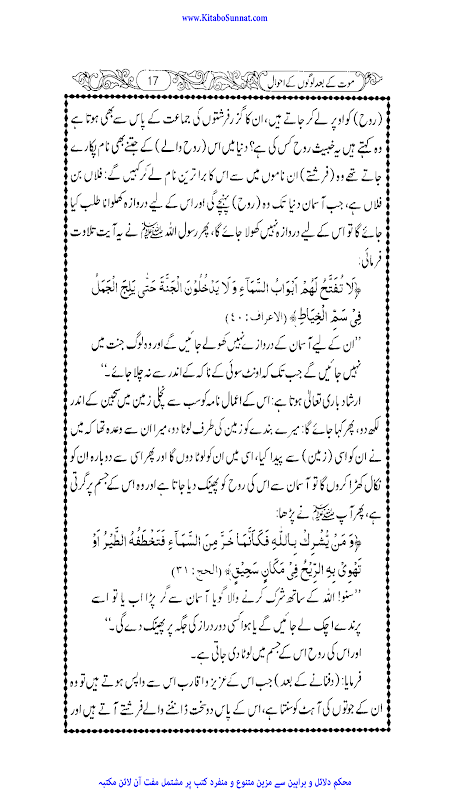 www.KitaboSunnat.com
موت کے بعد لوگوں کے احوال
17
(روح) کو اوپر لے کر جاتے ہیں، ان کا گزر فرشتوں کی جماعت کے پاس سے بھی ہوتا ہے
وہ کہتے ہیں یہ خبیث روح کس کی ہے؟ دنیا میں اس (روح والے) کے جتنے بھی نام پکارے
جاتے تھے وہ (فرشتے) ان ناموں میں سے اس کا بدترین نام لے کر کہیں گے: فلاں بن
فلاں ہے، جب آسمان دنیا تک وہ (روح) پہنچے گی اور اس کے لیے دروازہ کھلوانا طلب کیا
جائے گا تو اس کے لیے دروازہ نہیں کھولا جائے گا، پھر رسول اللہ ﷺ نے یہ آیت تلاوت
فرمائی:
﴿لَا تُفَتَّحُ لَهُمْ اَبْوَابُ السَّمَآءِ وَلَا يَدْخُلُوْنَ الْجَنَّةَ حَتّٰى يَلِجَ الْجَمَلُ
فِىْ سَمِّ الْخِيَاطِ﴾ (الاعراف: ٤٠)
’’ان کے لیے آسمان کے دروازے نہیں کھولے جائیں گے اور وہ لوگ جنت میں
نہیں جائیں گے جب تک کہ اونٹ سوئی کے ناکہ کے اندر سے نہ چلا جائے۔‘‘
ارشاد باری تعالیٰ ہوتا ہے: اس کے اعمال نامہ کو سب سے نچلی زمین میں سجین کے اندر
لکھ دو، پھر کہا جائے گا: میرے بندے کو زمین کی طرف لوٹا دو، میرا ان سے وعدہ تھا کہ میں
نے ان کو اسی (زمین) سے پیدا کیا، اسی میں ان کو لوٹا دوں گا اور پھر اسی سے دوبارہ ان کو
نکال کھڑا کروں گا تو آسمان سے اس کی روح کو پھینک دیا جاتا ہے اور وہ اس کے جسم پر گرتی
ہے، پھر آپ ﷺ نے پڑھا:
﴿وَمَنْ يُّشْرِكْ بِاللّٰهِ فَكَاَنَّمَا خَرَّ مِنَ السَّمَآءِ فَتَخْطَفُهُ الطَّيْرُ اَوْ
تَهْوِىْ بِهِ الرِّيْحُ فِىْ مَكَانٍ سَحِيْقٍ﴾ (الحج: ٣١)
’’سنو! اللہ کے ساتھ شرک کرنے والا گویا آسمان سے گر پڑا اب یا تو اسے
پرندے اچک لے جائیں گے یا ہوا کسی دور دراز کی جگہ پر پھینک دے گی۔‘‘
اور اس کی روح اس کے جسم میں لوٹا دی جاتی ہے۔
فرمایا: (دفنانے کے بعد) جب اس کے عزیز و اقارب اس سے واپس ہوتے ہیں تو وہ
ان کے جوتوں کی آہٹ کو سنتا ہے، اس کے پاس دو سخت ڈانٹنے والے فرشتے آتے ہیں اور
محکم دلائل و براہین سے مزین متنوع و منفرد کتب پر مشتمل مفت آن لائن مکتبہ